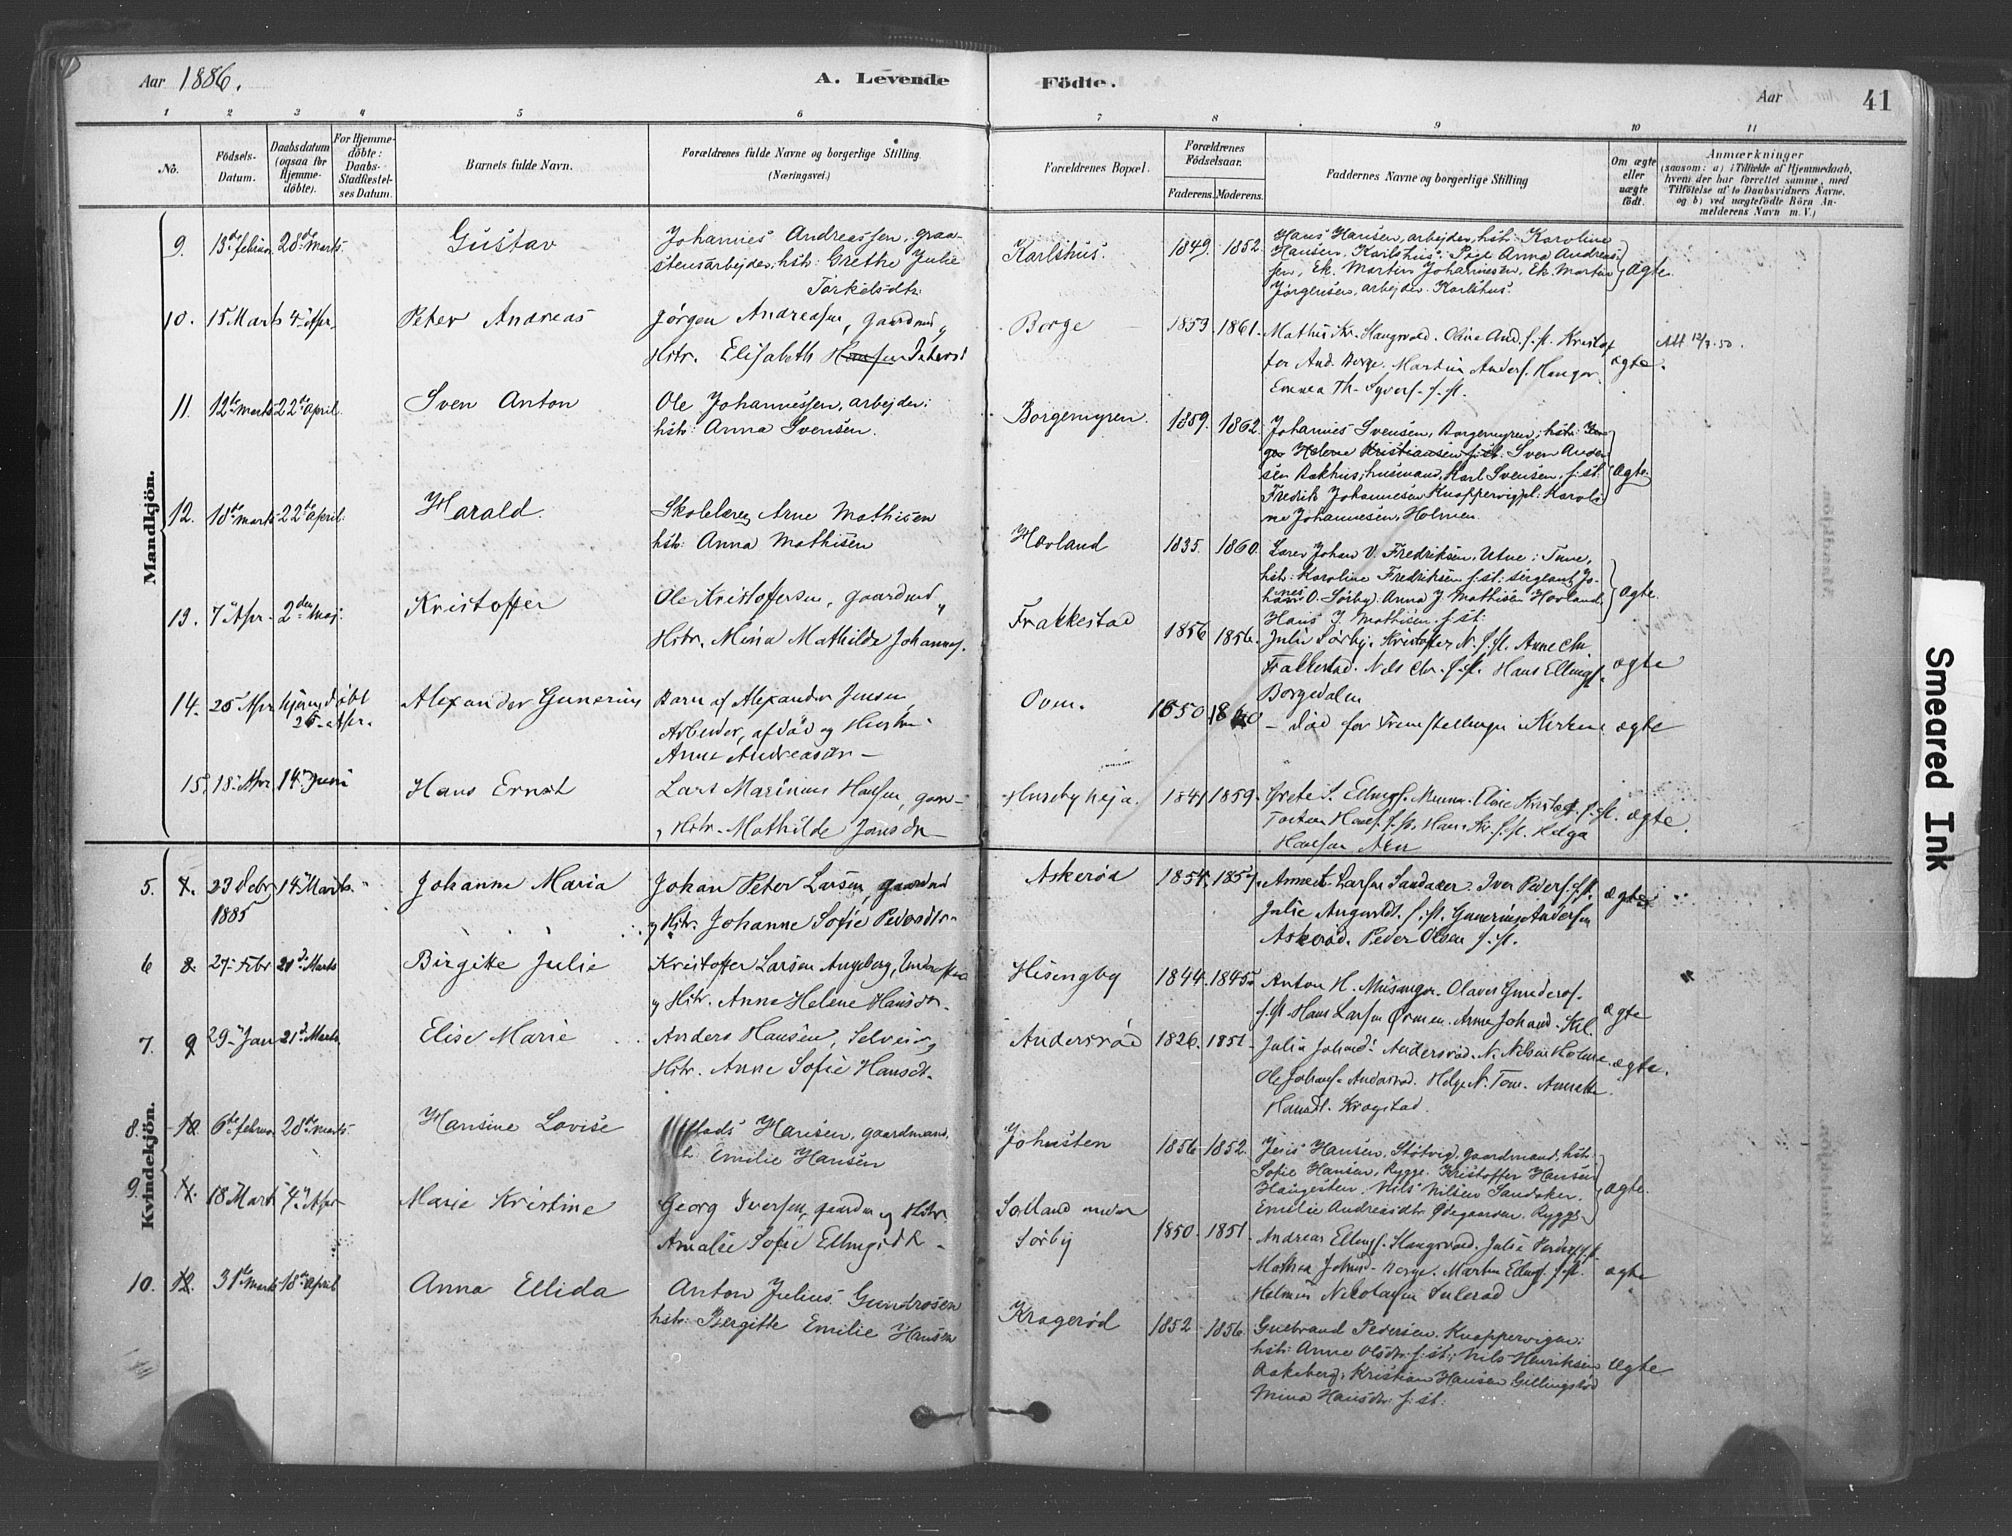 Aar 1886.
A. Levende
Födte.
Aar
41
1 2 3 4 5 6
7 8 9 10 11
No.
Födsels-
Datum.
Daabsdatum
(ogsaa for
Hjemme-
döbte).
For Hjemme-
döbte:
Daabs-
Stadfæstel-
ses Datum.
Barnets fulde Navn.
Forældrenes fulde Navne og borgerlige Stilling
(Næringsvei.)
Forældrenes Bopæl.
Forældrenes
Födselsaar.
Faderens. Moderens.
Faddernes Navne og borgerlige Stilling
Om ægte
eller
uægte
födt.
Anmærkninger
(saasom: a) i Tilfælde af Hjemmedaab,
hvem der har forrettet samme, med
Tilföielse af to Daabsvidners Navne.
og b) ved uægtefödte Börn An-
melderens Navn m. V.)
Mandkjön.
9. 13de februar 28de marts Gustav
Johannes Andreassen, graa-
stensarbejder, hst: Grethe Julie
Torkelsdtr:
Karlshus. 1849. 1852.
Hans Hansen, arbejder, hst: Karoline
Hansen, Karlshus. Pige Anna Andreas-
sen, Ek. Martin Johannesen, Ek. Martin
Jörgensen, arbejder. Karlshus.
ægte.
10. 15 Marts 4 Apr. Peter Andreas
Jørgen Andreasen, gaardmd,
Hstr. Elisabeth Hansen Petersd
Borge 1859. 1861.
Mathis Kr. Haugsvold. Oline And. f. st. Kristof
fer And. Borge. Martin Anders.
Emma Th. Syvers. f. st.
ægte.
Att 12/7.50.
11. 12te marts 22de april Sven Anton
Ole Johannessen, arbejder:
hst: Anna Svensen.
Borgemyren. 1859. 1862.
Johannes Svensen, Borgemyren, hst:
Helene Kristiansen f: st. Sven Ander-
sen Bakhus, husmand, Karl Svensen, f: st.
Fredrik Johannesen Knappervig, pl: Karoli-
ne Johannesen, Holmen
ægte.
12. 18de marts 22de april. Harald.
Skolelærer, Arne Mathisen
hst: Anna Mathisen
Hovland 1835. 1860.
Lærer Johan V. Fredriksen, Utne: Tune,
hst: Karoline Fredriksen f: st: sergeant Jo-
hannes O. Sørby. Anna J Mathisen Hovland.
Hans J. Mathisen. f: st:
ægte.
13. 7 Apr. 2den Maj. Kristoffer
Ole Kristoffersen, gaardmd,
Hstr. Mina Mathilde Johannes.
Frakkestad 1856 1856.
Julie Sørby. Kristoffer N. f. st. Anne Chr
Frakkestad. Nils Chr. f. st. Hans Ellings.
Borgedalen
ægte
14. 25 Apr hjemmedøbt
25 Apr.
Alexander Gunerius
Barn af Alexander Jensen
Arbeider, afdød og Hustru
Anne Andreasdr
Oven. 1850 1840
Død før Fremstillingen i Kirken
ægte
15. 18 Apr 14 Juni Hans Ernst
Lars Marinius Hansen, gaar-
Hstr. Mathilde Jansdr
Huseby 1841 1859.
Grete S. Ellings.
f. st. Helga
Hansen
ægte.
Kvindekjön.
5. 7. 23 Debr
1885
14 Marts. Johanne Maria
Johan Peter Larsen, gaardmd
og Hstr. Johanne Sofie Pedersdtr
Askerød 1854. 1857.
Annet. Larsen Sandaker. Iver Peders. f. st.
Julie Augustdt. f. st. Gunerius Andersen
Askerød. Peder Olsen f. st.
ægte
6 8. 27 Febr 21de Marts Birgitte Julie
Kristoffer Larsen Angeberg,
og Hstr. Anne Helene Hansdr.
Hisengby 1844. 1845.
Anton H. Olaves Gunders.
f. st. Hans Larsen Ørmen. Anne Johand.
ægte
7. 9 29 Jan 21de Marts. Elise Marie
Anders Hansen, Selveier,
Hstr. Anne Sofie Hansdt.
Andersrød 1826. 1851.
Julie Johand. Andersrød. N. Nilsen Holme
Ole Johans. Andersrød. Helge N. Tom. Annette
Hansdt. Krogstad.
ægte.
8. 10. 6te februar 28de marts. Hansine Lovise
Mads Hansen, gaardmand,
h: Emilie Hansen
Johnsten 1856. 1852.
Jens Hansen, Støtvig, gaardmand, hst:
Sofie Hansen, Rygge. Kristoffer Hansen
Haugesten. Nils Nilsen Sandaker.
Emilie Andreasdtr Ødegaarden. Rygge
ægte.
9. 11. 18 Marts 4 Apr Marie Kristine
Georg Iversen, gaardm og Hstr.
Amalie Sofie Ellingsdtr
Solland under
Sørby
1850. 1851.
Andreas Ellings. Haugsvold. Julie Peders. f. st
Mathea Johansd. Borge. Martin Ellings f. st.
Helmin Nikolaysen Sulerød
ægte
10. 12. 31te marts 18de april Anna Ellida
Anton Julius Gundrosen
hst: Bergitte Emilie Hansen
Kragerød 1852. 1856.
Gulbrand Pedersen, Knappervigen,
hst: Anne Olsdtr. f: st:, Nils Henriksen
Aakeberg, Kristian Hansen Gillingsrød
Mina Hansdtr. f: st:
ægte
Smeared Ink